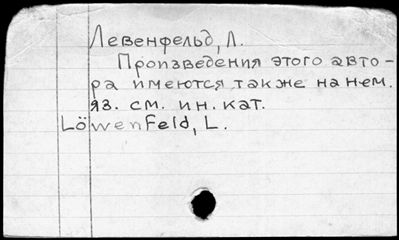 Левенфельд, Л.
Произведения этого авто-
ра имеются также на нем.
яз. см. ин. кат.
Löwenfeld, L.